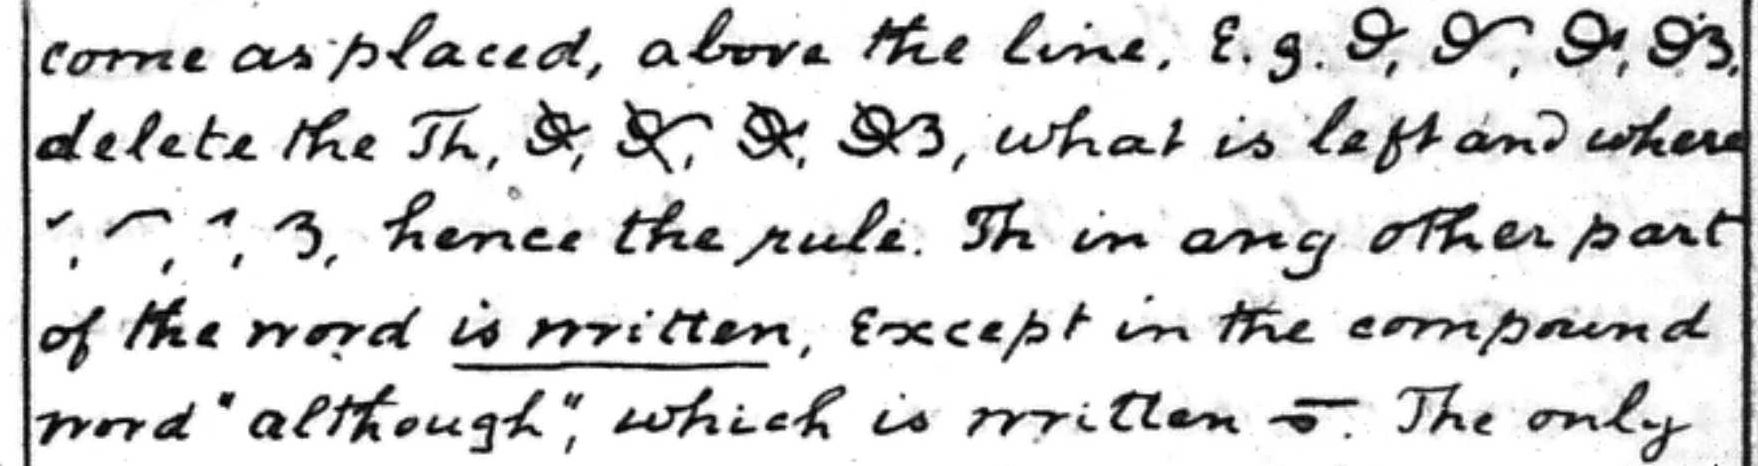 come as placed, above the line. E.g.
delete the Th, what is left and where
3, hence the rule. Th in any other part
of the word is written, Except in the compound
word "although", which is written . The only